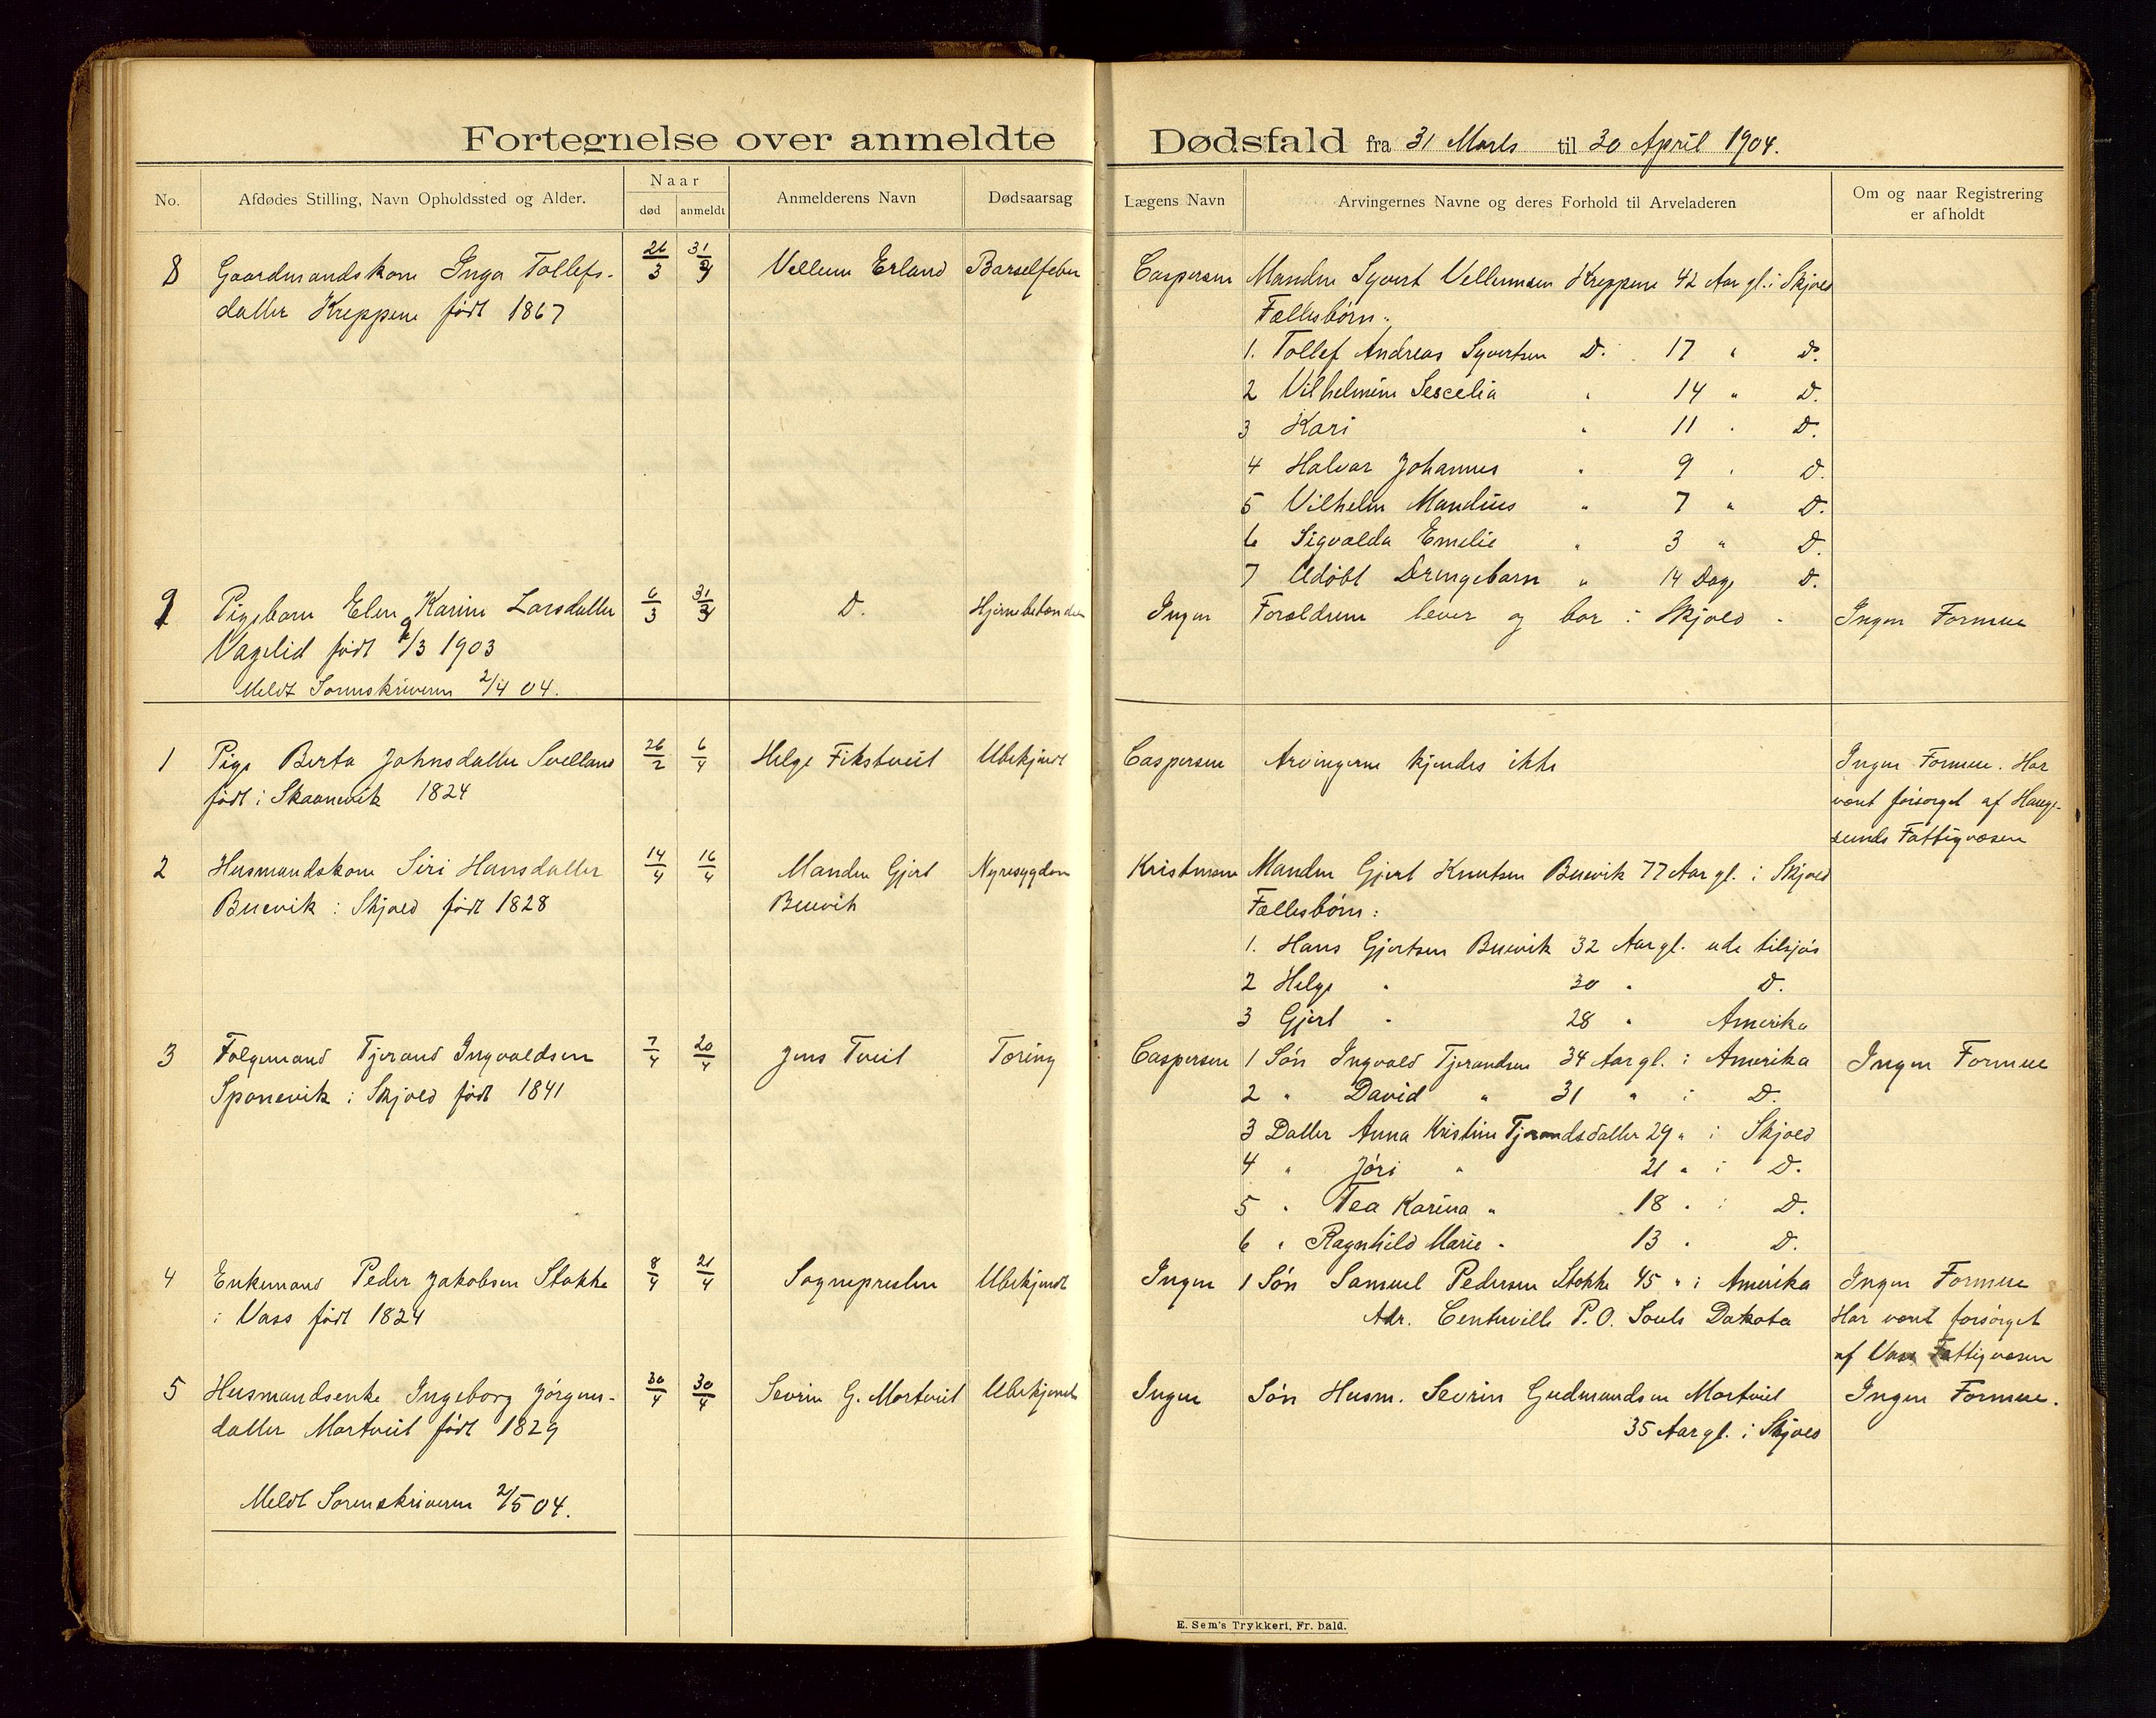 Fortegnelse over anmeldte Dødsfald fra 31 Marts til 30 April 1904.
No. Afdødes Stilling, Navn Opholdssted og Alder. Naar død anmeldt Anmelderens Navn Dødsaarsag Lægens Navn Arvingernes Navne og deres Forhold til Arveladeren Om og naar Registrering er afholdt
8 Gaardmandskone Inga Tollefs- 26/3 31/3 Vellem Erland Barselfeber Caspersen Manden Syvert Vellemsen Kreppene 42 Aar gl. i Skjold
datter Kreppene født 1867 Fællesbørn:
1. Tollef Andreas Syvertsen D. 17 " D.
2 Vilhelmine Sescelia " 14 " D.
3 Kari " 11 " D.
4 Halvar Johannes " 9 " D.
5 Vilhelm Mandius " 7 " D.
6 Sigvalda Emelie " 3 " D.
7 Udøbt Drengebarn " 14 Dage D.
9 Pigebarn Elen Karine Larsdatter 6/3 31/3 D. Hjernebetændelse Ingen Forældrene lever og bor i Skjold. Ingen Formue
Vagelid født 9/3 1903
Meldt Sorenskriveren 2/4 04.
1 Pige Berta Johnsdatter Svelland 26/2 6/4 Helge Fikstveit Ubekjendt Caspersen Arvingerne kjendes ikke Ingen Formue. Har
født i Skaanevik 1824 været forsørget af Hauge-
sunds Fattigvæsen
2 Husmandskone Siri Hansdatter 14/4 16/4 Manden Gjert Nyresygdom Kristensen Manden Gjert Knutsen Buevik 77 Aar gl. i Skjold
Buevik i Skjold født 1828 Buevik Fællesbørn:
1. Hans Gjertsen Buevik 32 Aar gl. ude tilsjøs
2 Helge " 30 " D.
3 Gjert " 28 " Amerika
3 Folgemand Tjerand Ingvaldsen 7/4 20/4 Jens Tveit Tæring Caspersen 1 Søn Ingvald Tjerandsen 34 Aar gl. i Amerika Ingen Formue
Sponevik i Skjold født 1841 2 " David " 31 " i D.
3 Datter Anna Kristine Tjerandsdatter 29 " i Skjold
4 " Jóri " 21 " i D.
5 " Tea Karina " 18 " i D.
6 " Ragnhild Marie " 13 " D.
4 Enkemand Peder Jakobsen Stakke 8/4 21/4 Sognepresten Ubekjendt Ingen 1 Søn Samuel Pedersen Stokke 45 " i Amerika Ingen Formue
i Vass født 1824 Adr. Centerville P.O. South Dakota Har været forsørget
af Vass Fattigvæsen
5 Husmandsenke Ingeborg Jørgens- 30/4 30/4 Sevrin G. Mortveit Ubekjendt Ingen Søn Husm. Sevrin Gudmundsen Mortveit Ingen Formue.
datter Mortveit født 1829 35 Aar gl. i Skjold
Meldt Sorenskriveren 2/5 04.
E. Sem's Trykkeri, Fr. hald.